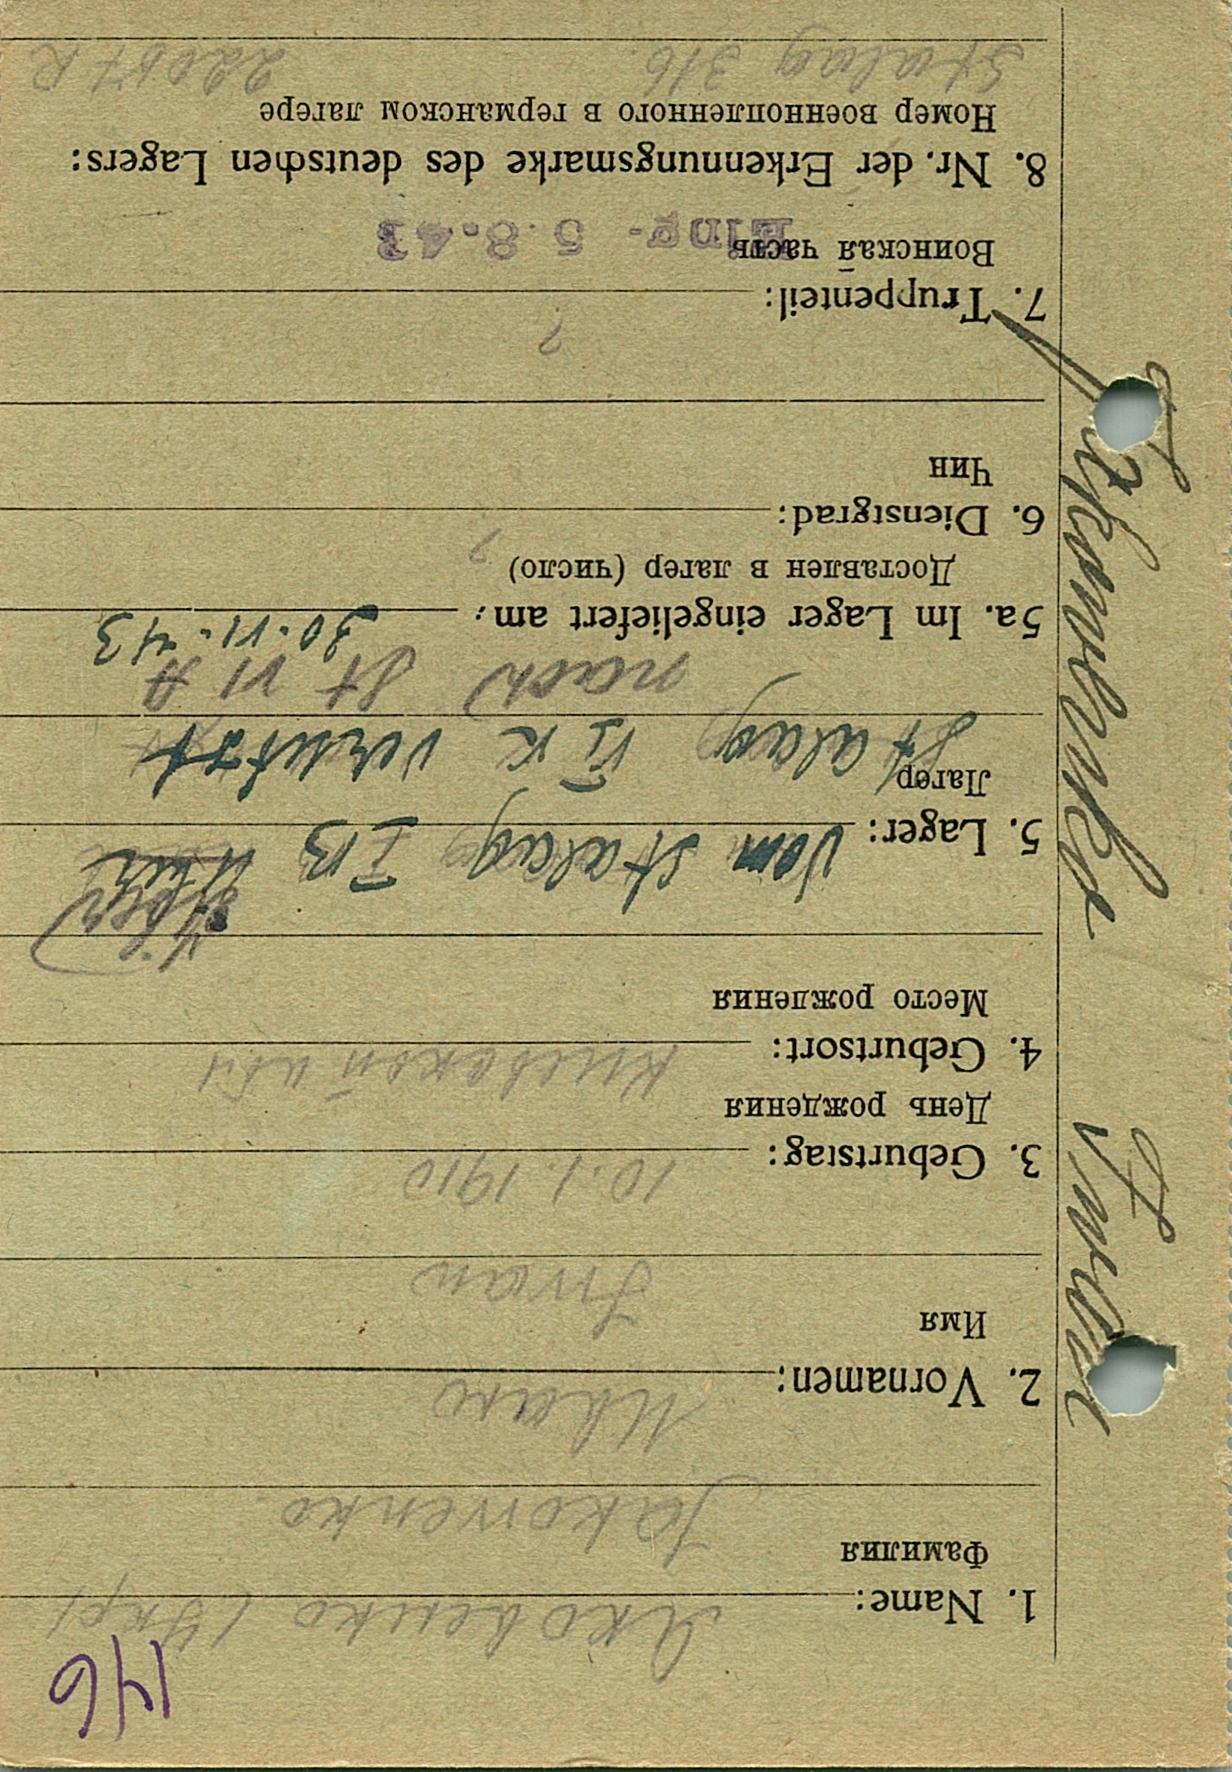 146
1. Name: Яковенко (Укр)
Фамилия
Jakowenko
2. Vornamen: Иван
Имя
Iwan
3. Geburtstag: 10.1.1910
День рождения
4. Geburtsort: Киевской
Место рождения
5. Lager: vom Stalag IB
Лагерь
Stalag VI K versetzt
nach St VI A
5a. Im Lager eingeliefert am: 30.VI.43
Доставлен в лагер (число)
6. Dienstgrad: ?
Чин
7. Truppenteil: ?
Воинская часть
Eing. 5.8.43
8. Nr. der Erkennungsmarke des deutschen Lagers:
Номер военнопленного в германском лагере
Stalag 316.
Iwan